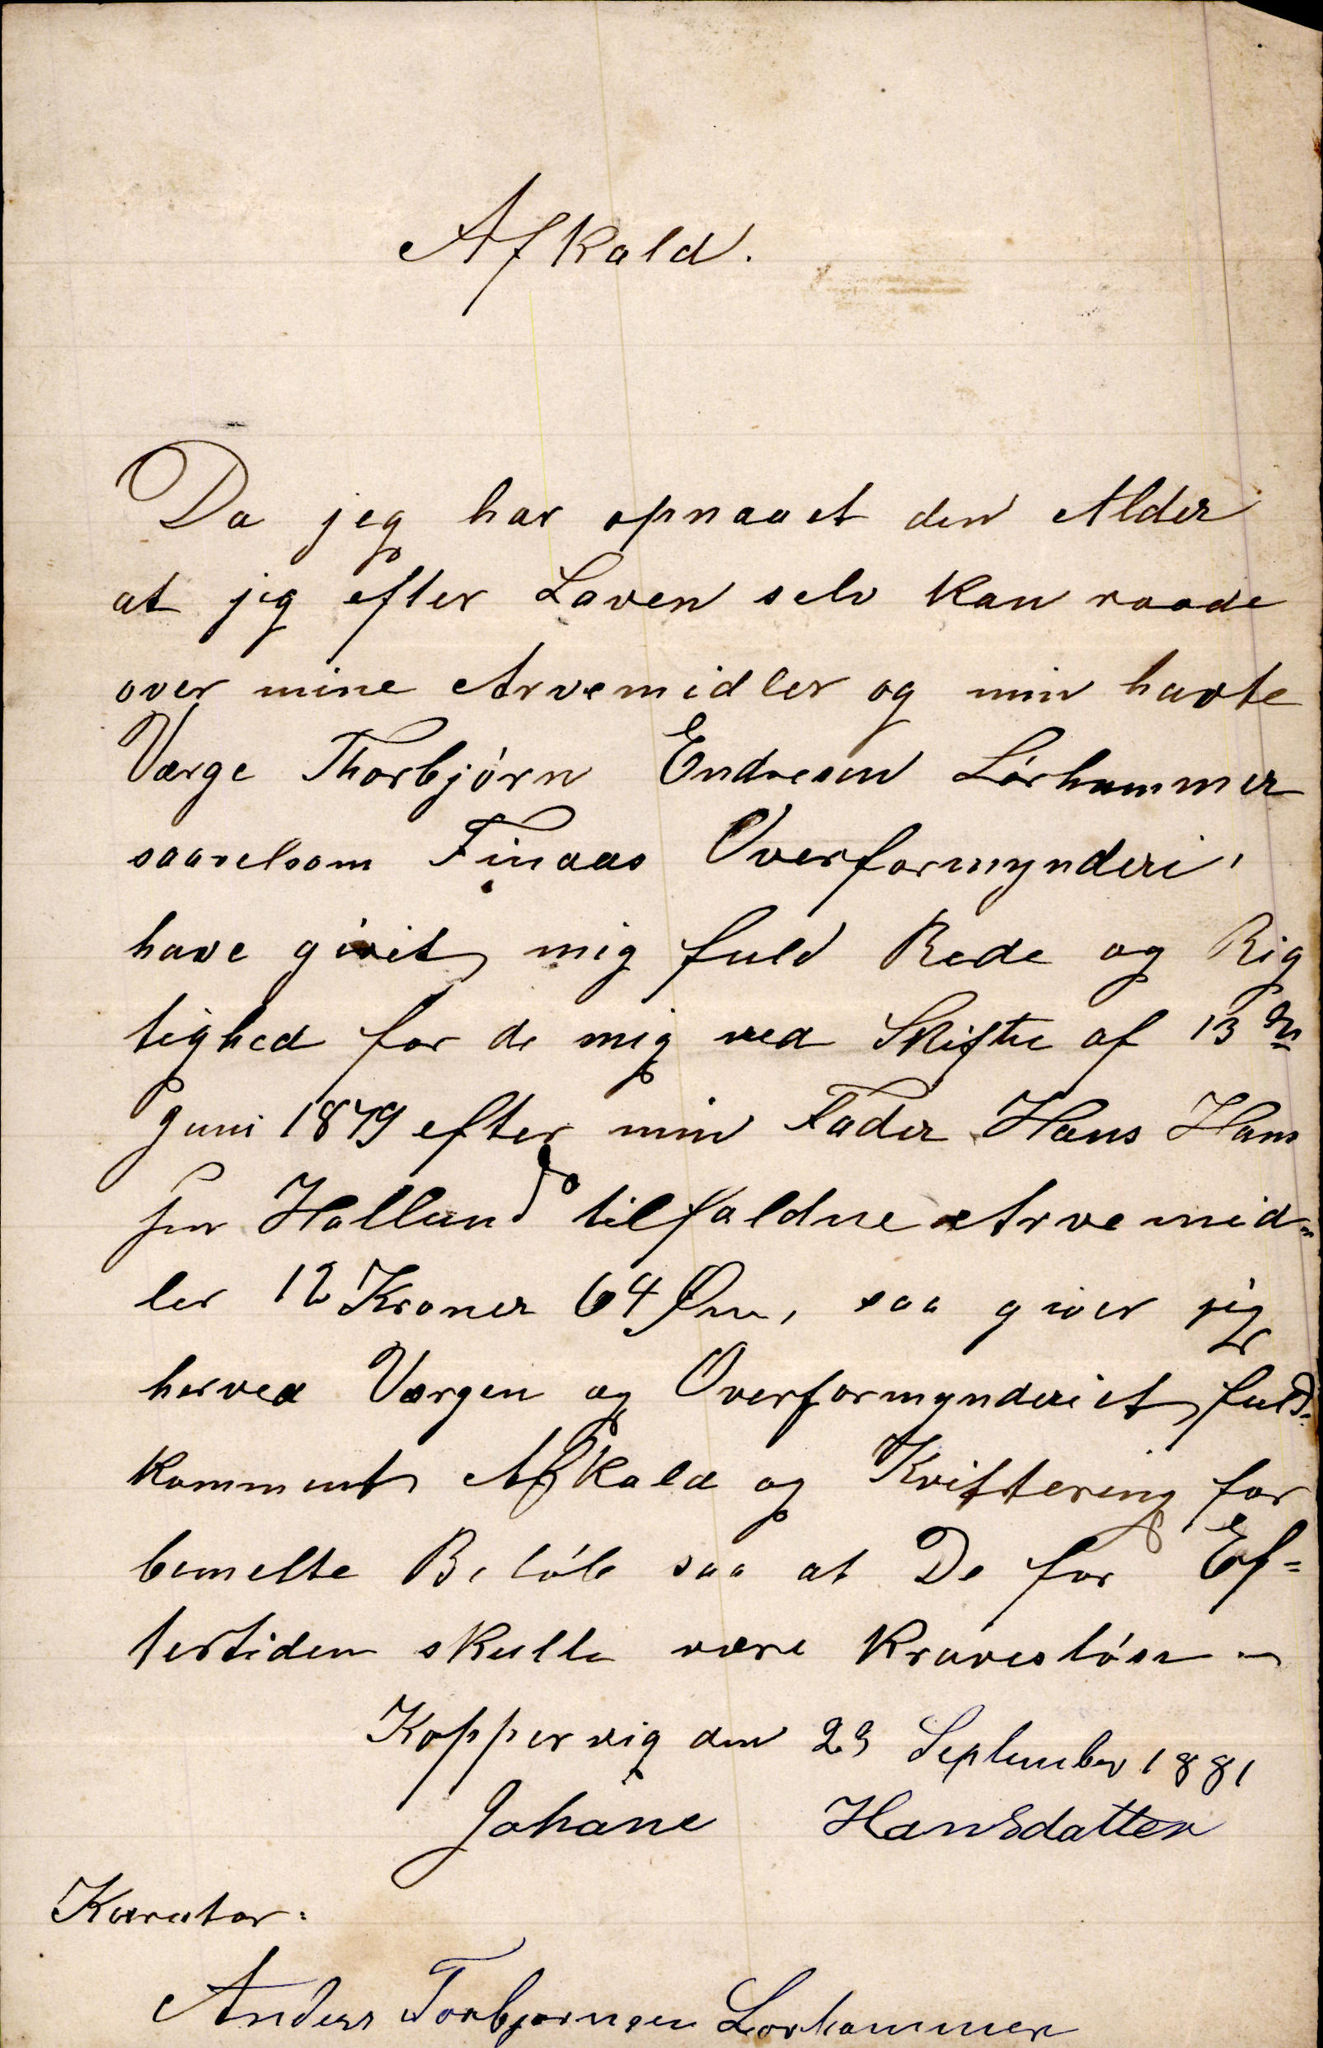 Afkald.
Da jeg har opnaaet den Alder
at jeg efter Loven selv kan raade
over mine Arvemidler og min havte
Værge Thorbjørn Endresen Lørhammer
saavelsom Finaas Overformynderi,
have givet mig fuld Rede og Rig
tighed for de mig ved Skifte af 13 de
Juni 1879 efter min Fader Hans Hans
sen Holland tilfaldne Arvemid-
ler 12 Kroner 64 Øre, saa giver jeg
herved Værgen og Overformynderiet fuld-
komment Afkald og Kvittering for
bemelte Beløb saa at De for Ef=
tertiden skulle være kravesløse -
Koppervig den 23 September 1881
Johane Hansdatter
Kurator:
Anders Torbjørnsen Lorhammer